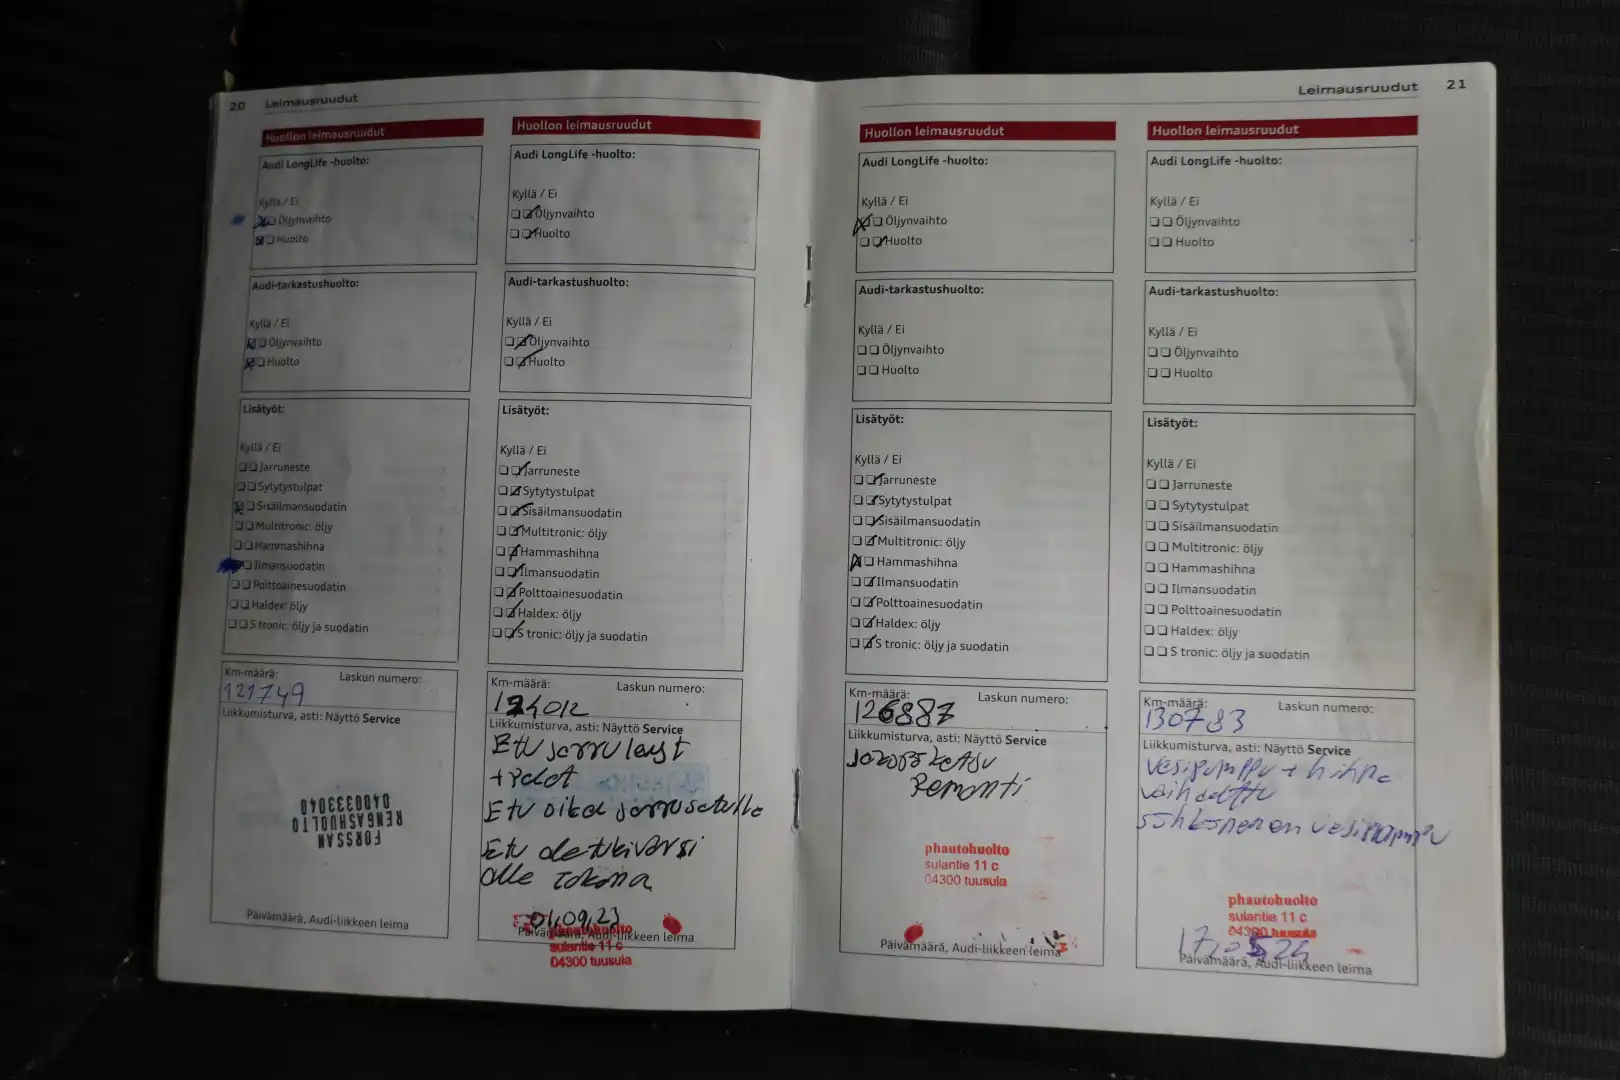 20 Leimausruudut
Huollon leimausruudut
Audi LongLife -huolto:
Kyllä / Ei
Öljynvaihto
Huolto
Audi-tarkastushuolto:
Kyllä / Ei
Öljynvaihto
Huolto
Lisätyöt:
Kyllä / Ei
Jarruneste
Sytytystulpat
Sisäilmansuodatin
Multitronic: öljy
Hammashihna
Ilmansuodatin
Polttoainesuodatin
Haldex: öljy
S tronic: öljy ja suodatin
Km-määrä: Laskun numero:
121749
Liikkumisturva, asti: Näyttö Service
FORSSAN
RENGASHUOLTO
0400333040
Päivämäärä, Audi-liikkeen leima
Huollon leimausruudut
Audi LongLife -huolto:
Kyllä / Ei
Öljynvaihto
Huolto
Audi-tarkastushuolto:
Kyllä / Ei
Öljynvaihto
Huolto
Lisätyöt:
Kyllä / Ei
Jarruneste
Sytytystulpat
Sisäilmansuodatin
Multitronic: öljy
Hammashihna
Ilmansuodatin
Polttoainesuodatin
Haldex: öljy
S tronic: öljy ja suodatin
Km-määrä: Laskun numero:
124012
Liikkumisturva, asti: Näyttö Service
Etu jarru levyt
+ palat
Etu oikea jarrusatula
Etu
01,09,23
Päivämäärä, Audi-liikkeen leima
phautohuolto
sulantie 11 c
04300 tuusula
Leimausruudut 21
Huollon leimausruudut
Audi LongLife -huolto:
Kyllä / Ei
Öljynvaihto
Huolto
Audi-tarkastushuolto:
Kyllä / Ei
Öljynvaihto
Huolto
Lisätyöt:
Kyllä / Ei
Jarruneste
Sytytystulpat
Sisäilmansuodatin
Multitronic: öljy
Hammashihna
Ilmansuodatin
Polttoainesuodatin
Haldex: öljy
S tronic: öljy ja suodatin
Km-määrä: Laskun numero:
126887
Liikkumisturva, asti: Näyttö Service
Jakopääketju
Remontti
phautohuolto
sulantie 11 c
04300 tuusula
Päivämäärä, Audi-liikkeen leima
Huollon leimausruudut
Audi LongLife -huolto:
Kyllä / Ei
Öljynvaihto
Huolto
Audi-tarkastushuolto:
Kyllä / Ei
Öljynvaihto
Huolto
Lisätyöt:
Kyllä / Ei
Jarruneste
Sytytystulpat
Sisäilmansuodatin
Multitronic: öljy
Hammashihna
Ilmansuodatin
Polttoainesuodatin
Haldex: öljy
S tronic: öljy ja suodatin
Km-määrä: Laskun numero:
130783
Liikkumisturva, asti: Näyttö Service
Vesipumppu + hihna
vaihdettu
sähköinen vesipumppu
phautohuolto
sulantie 11 c
04300 tuusula
Päivämäärä, Audi-liikkeen leima